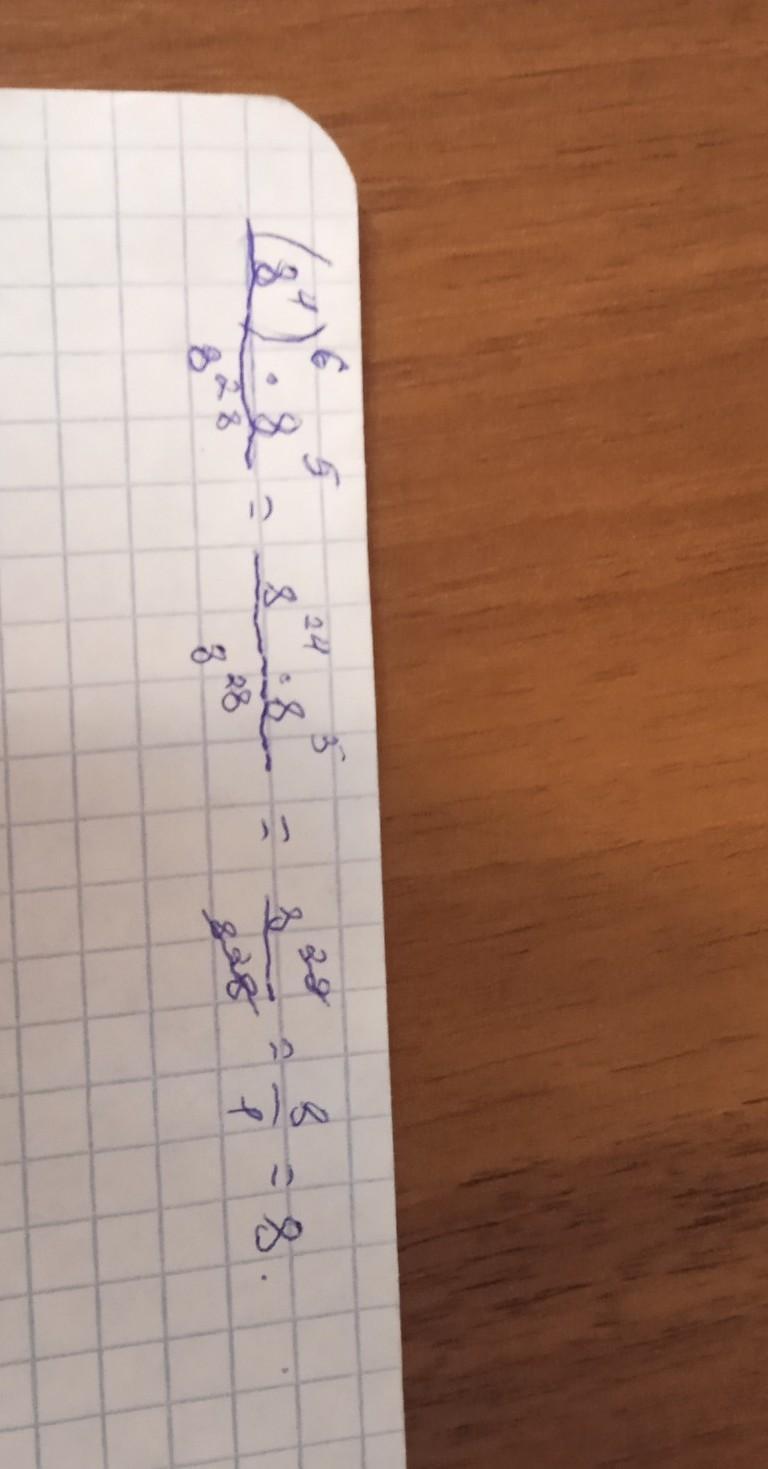 (8⁴)⁶ · 8⁵ / 8²⁸ = 8²⁴ · 8⁵ / 8²⁸ = 8²⁹ / 8²⁸ = 8 / 1 = 8.